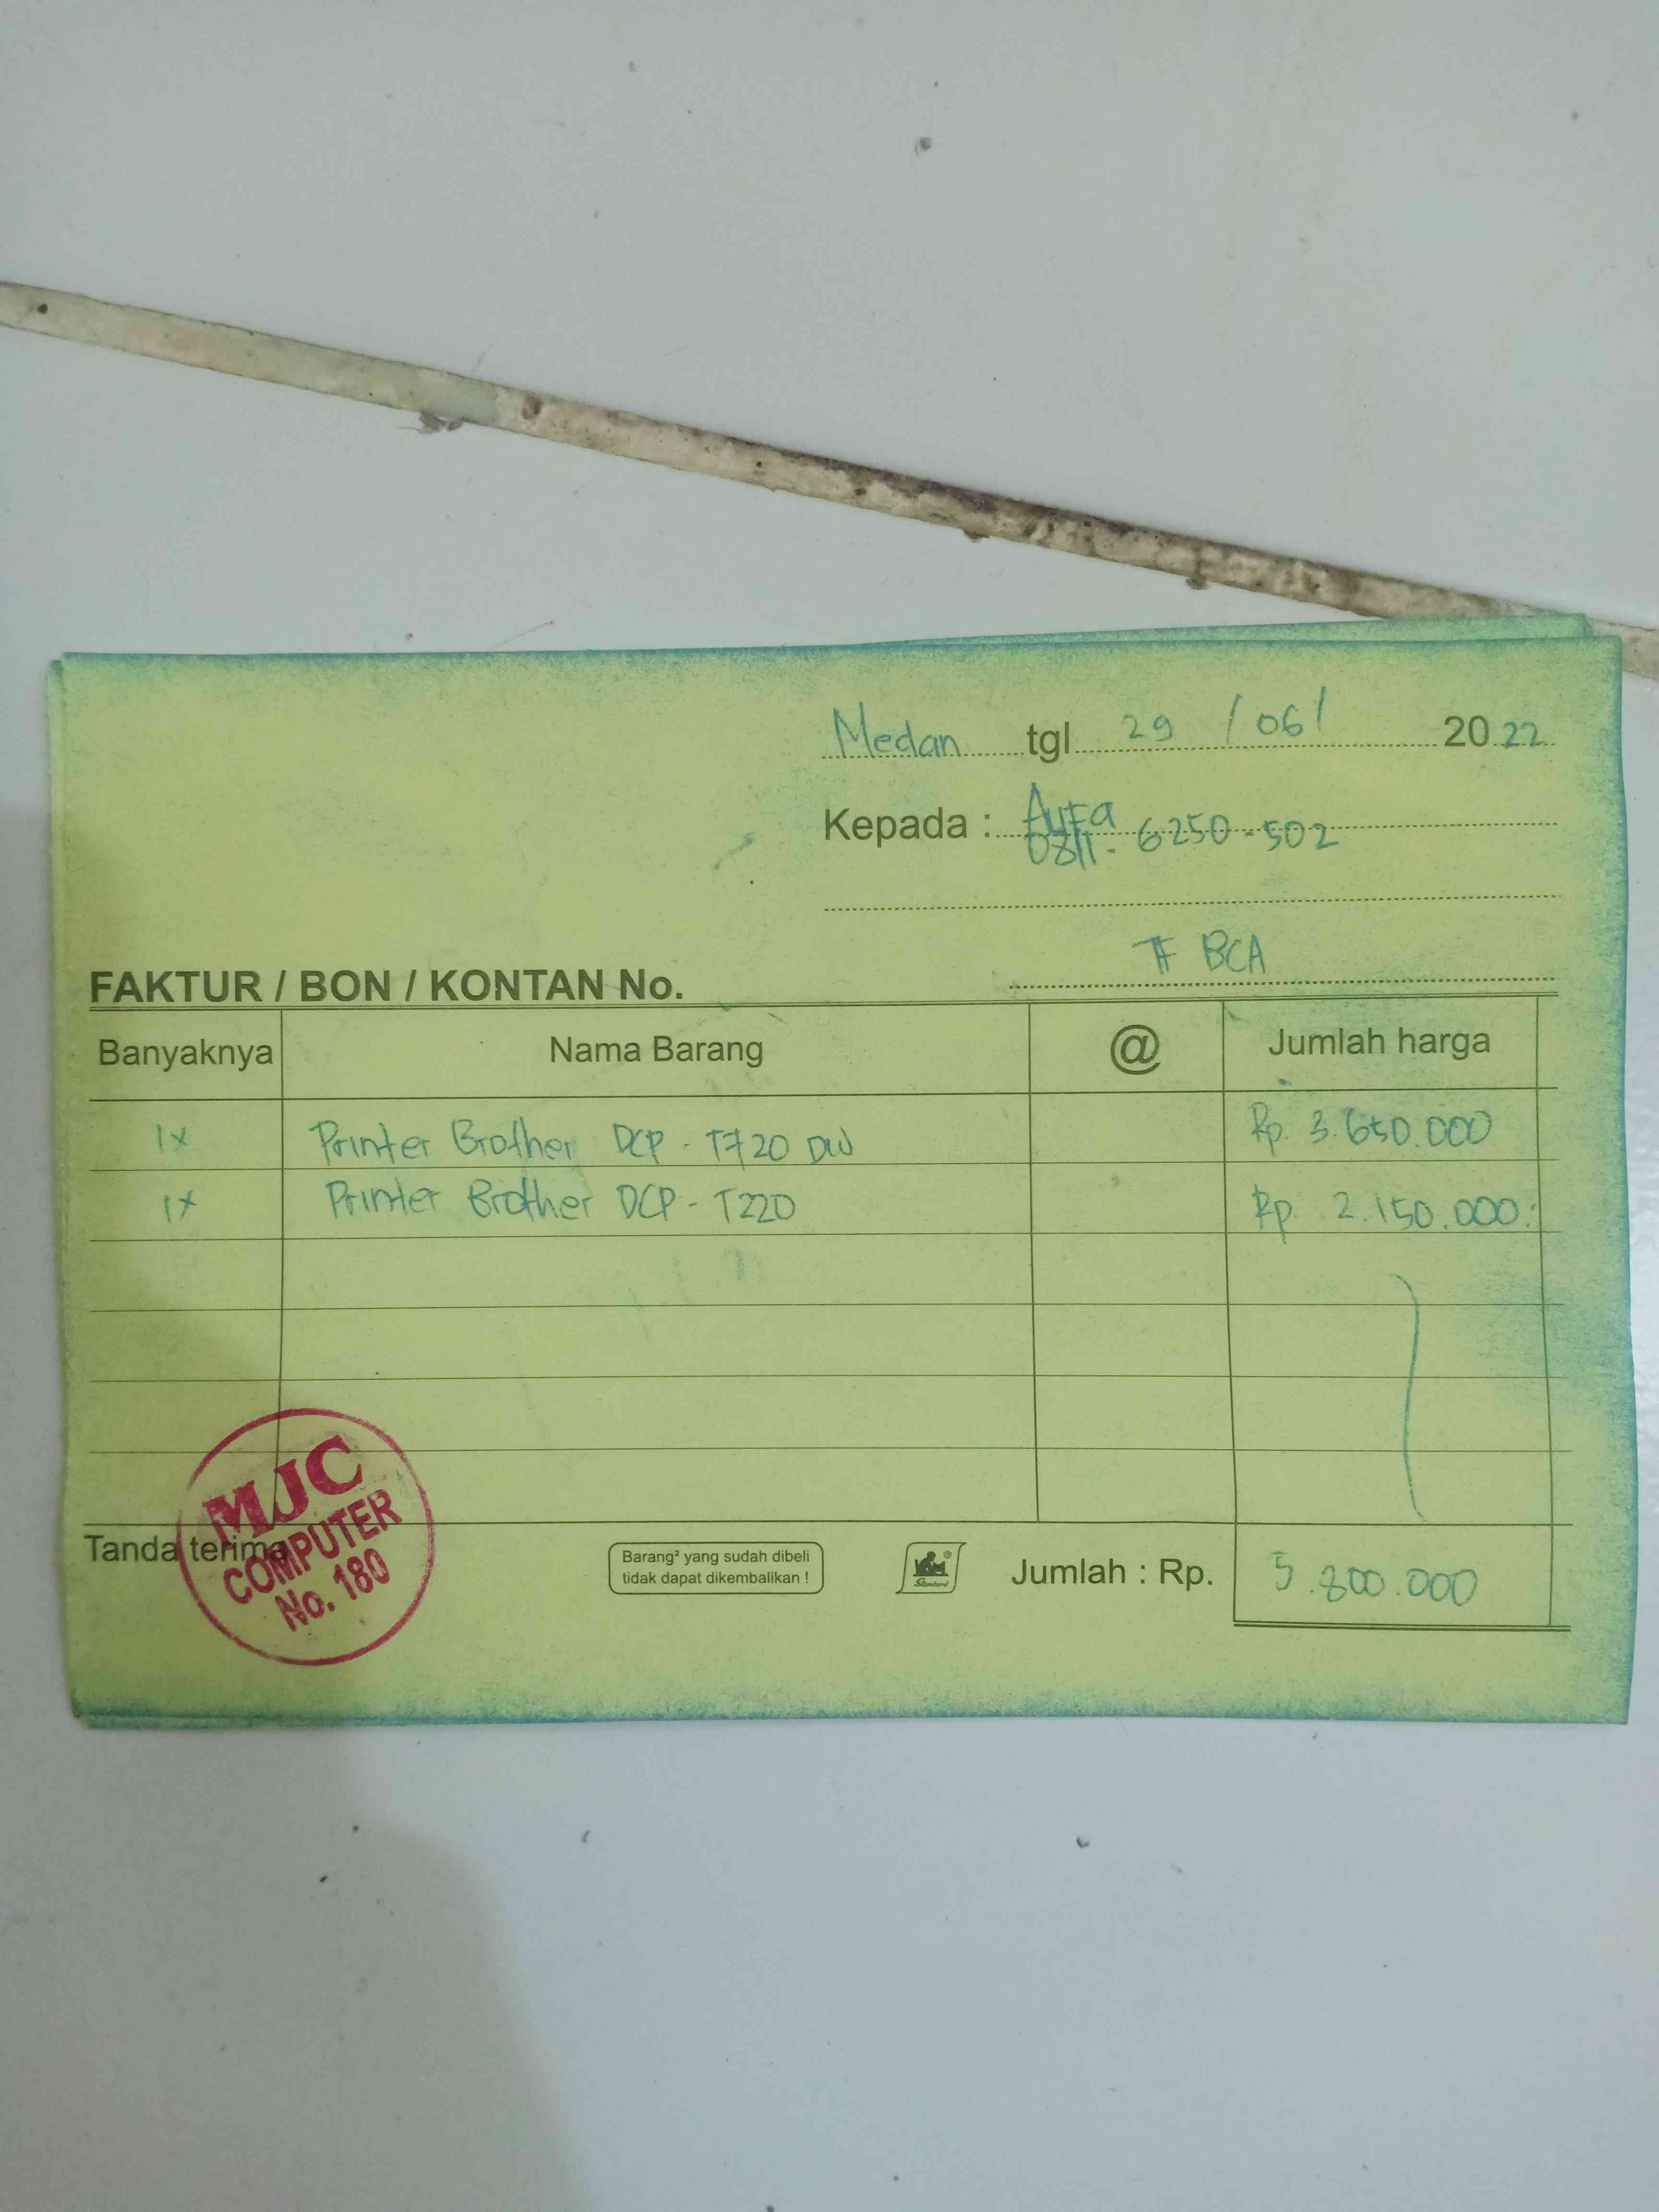 Medan tgl 29 /06/ 2022
Kepada : Ayfa
0811- 6250-502
TF BCA
FAKTUR / BON / KONTAN No.
Banyaknya Nama Barang @ Jumlah harga
1x Printer Brother DCP - T720 DW Rp. 3.650.000
1x Printer Brother DCP - T220 Rp. 2.150.000
Tanda terima
MJC
COMPUTER
No. 180
Barang² yang sudah dibeli
tidak dapat dikembalikan !
Standard
Jumlah : Rp. 5.800.000